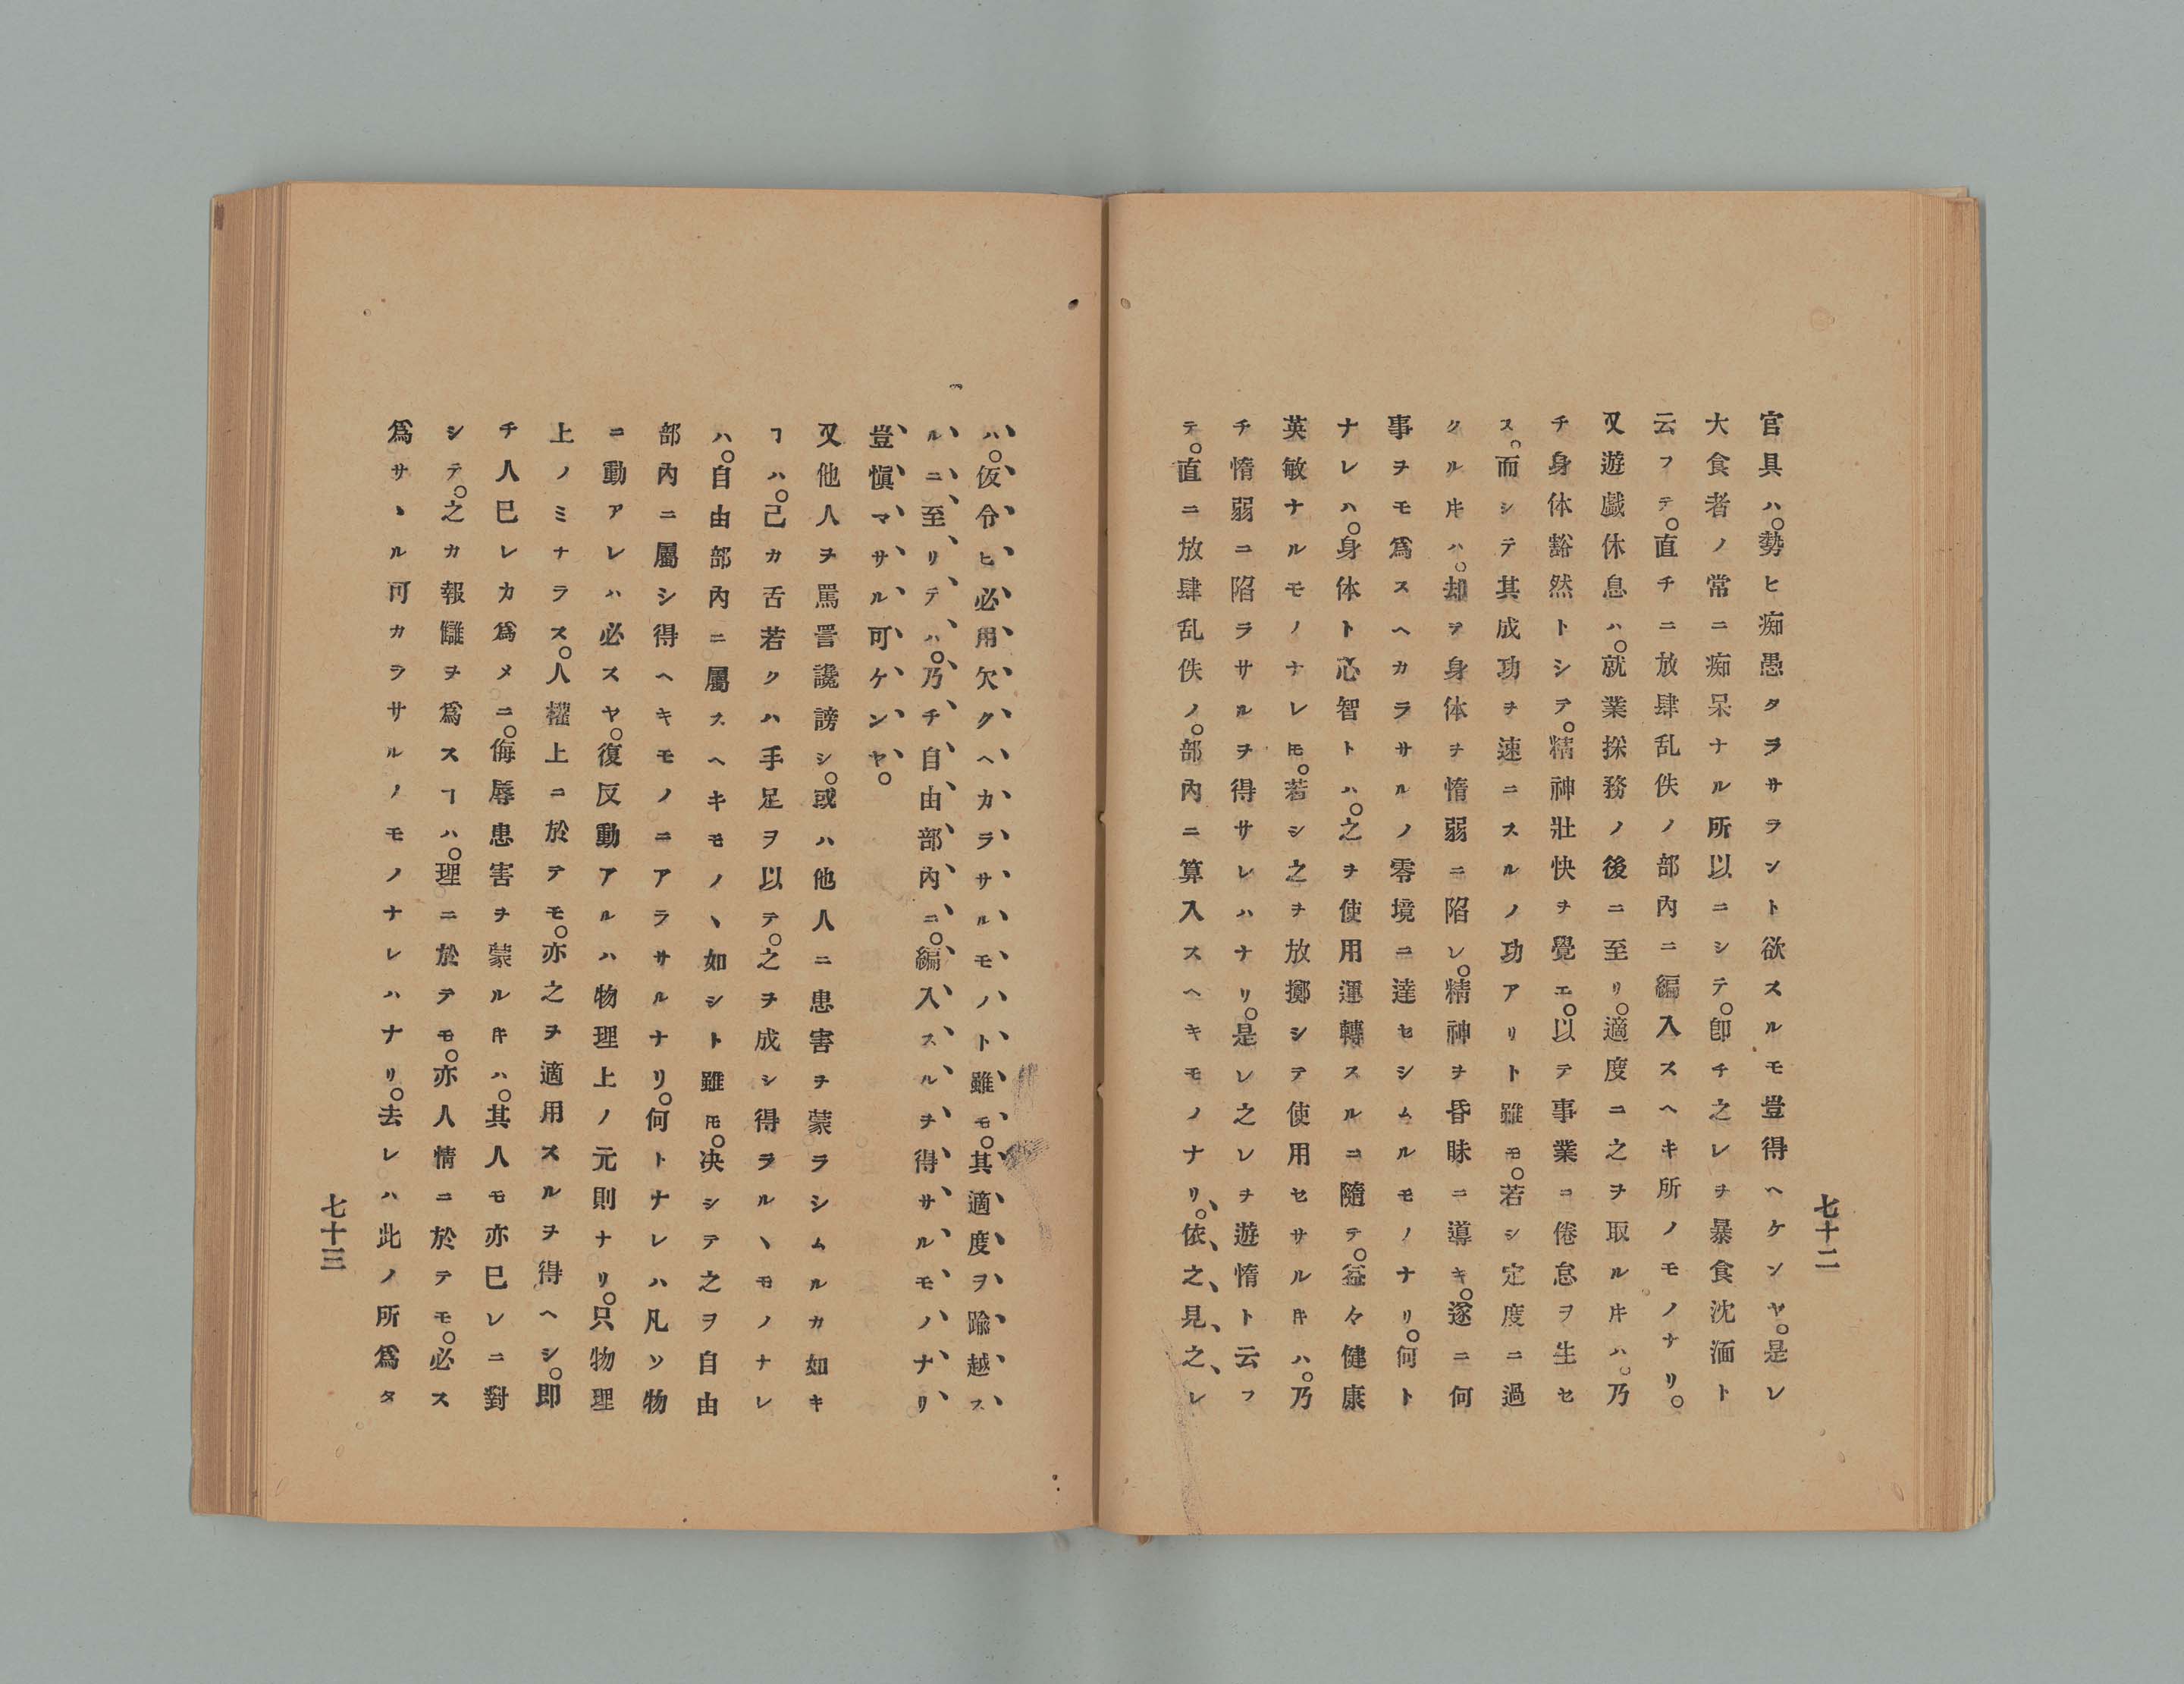 七十二
官具ハ。勢ヒ痴愚タラサラント欲スルモ豈得ヘケンヤ。是レ
大食者ノ常ニ痴呆ナル所以ニシテ。卽チ之レヲ暴食沈湎ト
云フテ。直チニ放肆乱佚ノ部內ニ編入スヘキ所ノモノナリ。
又遊戱休息ハ。就業採務ノ後ニ至リ。適度ニ之ヲ取ルㇳキハ。乃
チ身体豁然トシテ。精神壯快ヲ覺エ。以テ事業ニ倦怠ヲ生セ
ス。而シテ其成功ヲ速ニスルノ功アリト雖モ。若シ定度ニ過
クルㇳキハ。却ヲ身体ヲ惰弱ニ陷レ。精神ヲ昏昧ニ導キ。遂ニ何
事ヲモ爲スヘカラサルノ零境ニ達セシムルモノナリ。何ト
ナレハ。身体ト心智トハ。之ヲ使用運轉スルニ隨テ。益々健康
英敏ナルモノナレㇳモ。若シ之ヲ放擲シテ使用セサルㇳキハ。乃
チ惰弱ニ陷ラサルヲ得サレハナリ。是レ之レヲ遊惰ト云フ
テ。直ニ放肆乱佚ノ。部內ニ算入スヘキモノナリ。依之見之レ
ハ。仮令ヒ必用欠クヘカラサルモノト雖モ。其適度ヲ踰越ス
ルニ至リテハ。乃チ自由部內ニ。編入スルヲ得サルモノナリ
豈愼マサル可ケンヤ。
又他人ヲ罵詈讒謗シ。或ハ他人ニ患害ヲ蒙ラシムルカ如キ
ヿハ。己カ舌若クハ手足ヲ以テ。之ヲ成シ得ラルヽモノナレ
ハ。自由部內ニ屬スヘキモノヽ如シト雖ㇳモ。决シテ之ヲ自由
部內ニ屬シ得ヘキモノニアラサルナリ。何トナレハ凡ソ物
ニ動アレハ必スヤ。復反動アルハ物理上ノ元則ナリ。只物理
上ノミナラス。人權上ニ於テモ。亦之ヲ適用スルヲ得ヘシ。即
チ人巳レカ爲メニ。侮辱患害ヲ蒙ルㇳキハ。其人モ亦巳レニ對
シテ。之カ報讎ヲ爲スヿハ。理ニ於テモ。亦人情ニ於テモ。必ス
爲サヽル可カラサルノモノナレハナリ。去レハ此ノ所爲タ
七十三